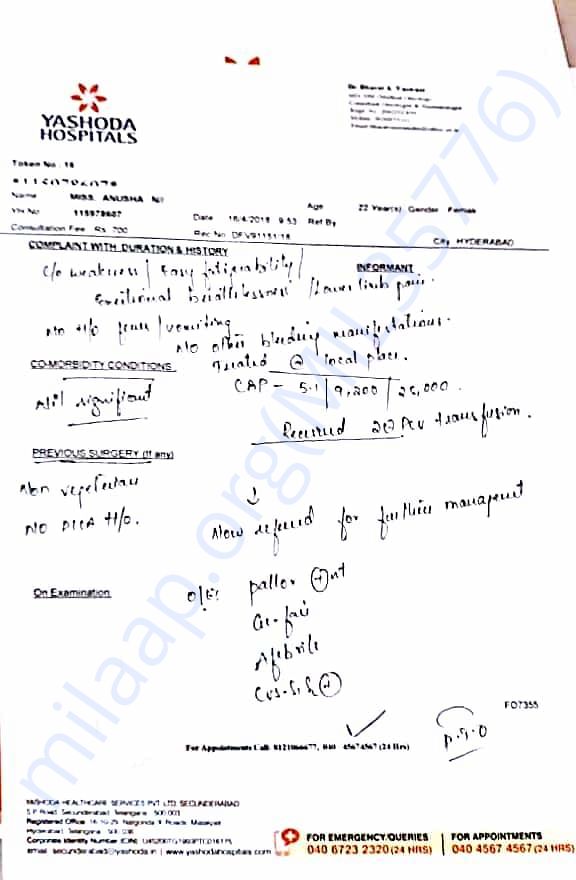 YASHODA
HOSPITALS
Token No : 16
Name MISS. ANUSHA Age 22 Year(s) Gender Female
YH No 115979607 Date 16/4/2018 9:53 Ref By
Consultation Fee Rs. 700 Rec No City HYDERABAD
COMPLAINT WITH DURATION & HISTORY
INFORMANT
c/o weakness / Easy fatiguability /
Exertional breathlessness / Lower limb pain.
No H/o fever / vomiting
No other bleeding manifestations.
CO-MORBIDITY CONDITIONS
Treated @ local place.
Nil significant
5.1 | 9,200 | 26,000.
Received PCV transfusion.
PREVIOUS SURGERY (If any)
Non vegetarian
No H/o.
↓
Now referred for further management
On Examination
O/E: pallor
GC-fair
Afebrile
CVS-S1S2
FO7355
P.T.O
For Appointments Call: 8121066677, 040 45674567 (24 Hrs)
YASHODA HEALTHCARE SERVICES PVT. LTD. SECUNDERABAD
S P Road, Secunderabad, Telangana 500 003
Registered Office 16-10-29, Nalgonda X Roads, Malakpet
Hyderabad, Telangana 500 036
Corporate Identity Number (CIN)
email secunderabad@yashoda.in | www.yashodahospitals.com
FOR EMERGENCY/QUERIES
040 6723 2320 (24 HRS)
FOR APPOINTMENTS
040 4567 4567 (24 HRS)
milaap.org(MIL135776)